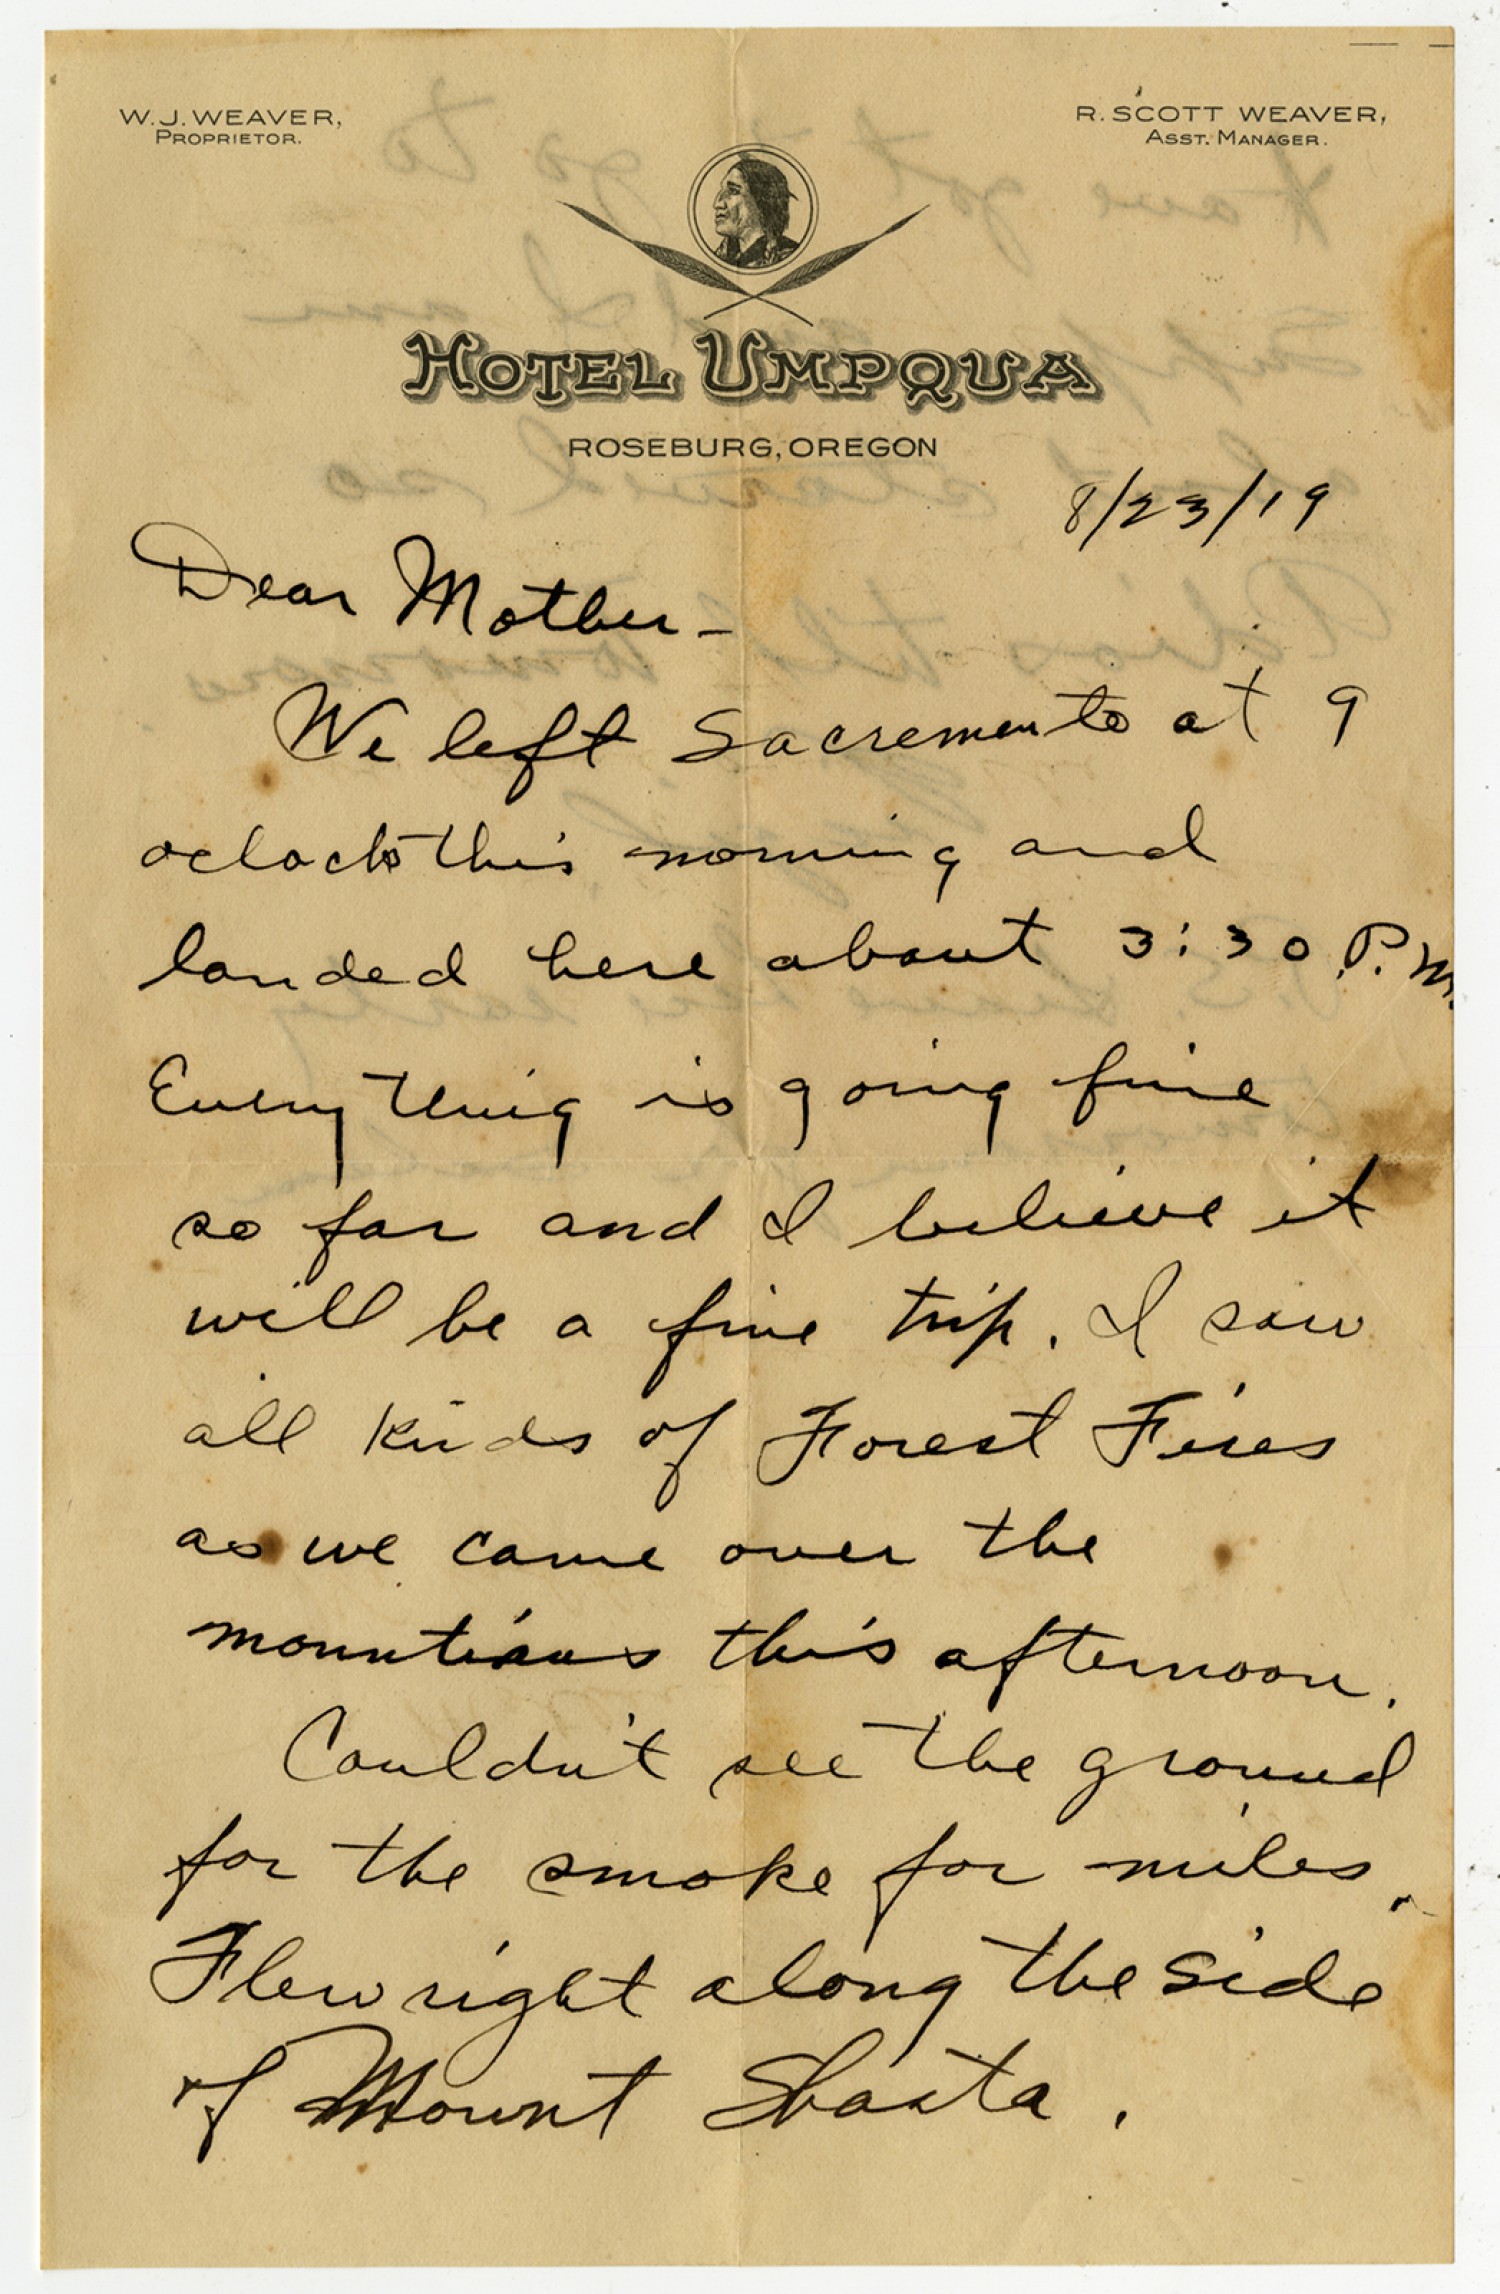 W. J. WEAVER,
PROPRIETOR.
R. SCOTT WEAVER,
ASST. MANAGER.
HOTEL UMPQUA
ROSEBURG, OREGON
8/23/19
Dear Mother –
We left Sacremento at 9
oclock this morning and
landed here about 3:30 P.M.
Everything is going fine
so far and I believe it
will be a fine trip. I saw
all kinds of Forest Fires
as we came over the
mountians this afternoon.
Couldn't see the ground
for the smoke for miles.
Flew right along the side
of Mount Shasta.